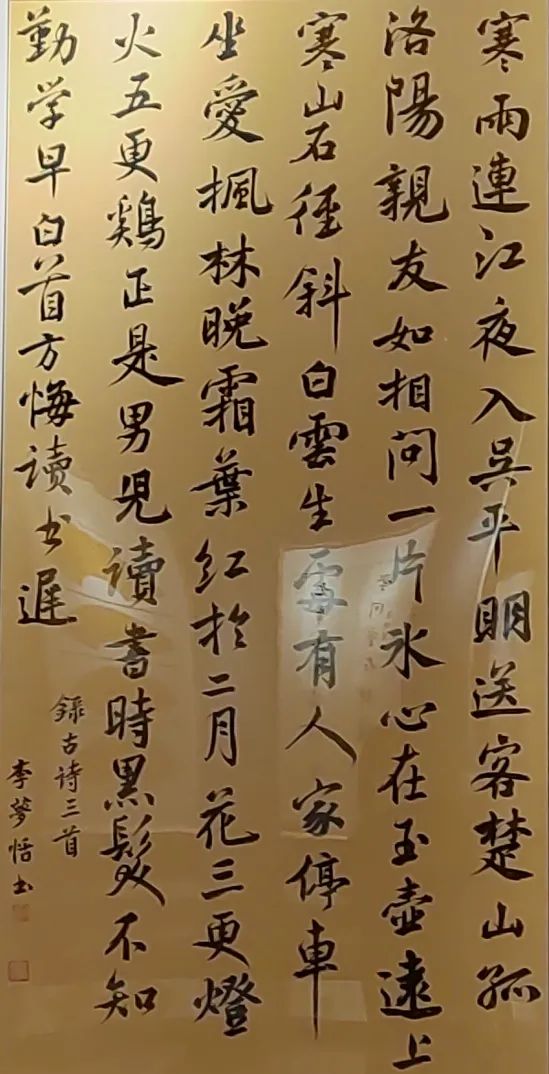 寒雨連江夜入吴平明送客楚山孤
洛陽親友如相问一片氷心在玉壺遠上
寒山石徑斜白雲生處有人家停車
坐愛楓林晚霜葉红於二月花三更燈
火五更鷄正是男児讀書時黑髮不知
勤学早白首方悔读书遲
録古诗三首
李夢恬书